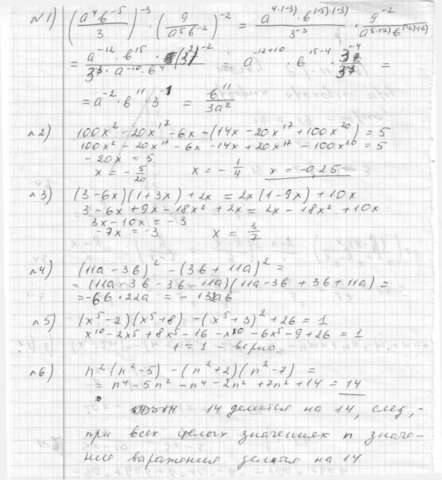 №1) (a⁴b⁻⁵/3)⁻³ · (9/a⁵b⁻²)⁻² = a^(4·(-3)) · b^((-5)·(-3))/3⁻³ · 9⁻²/a^(5·(-2)) b^((-2)(-2)) =
= a⁻¹² · b¹⁵ · (3²)⁻²/3⁻³ · a⁻¹⁰ · b⁴ = a⁻¹²⁺¹⁰ · b¹⁵⁻⁴ · 3⁻⁴/3⁻³ =
= a⁻² · b¹¹ · 3⁻¹ = b¹¹/3a²
№2) 100x² - 20x¹⁷ - 6x - (14x - 20x¹⁷ + 100x²⁰) = 5
100x² - 20x¹⁷ - 6x - 14x + 20x¹⁷ - 100x²⁰ = 5
-20x = 5
x = -5/20 x = -1/4 x = -0,25
№3) (3-6x)(1+3x) + 2x = 2x(1-9x) + 10x
3-6x+9x-18x²+2x = 2x-18x²+10x
3x-10x = -3
-7x = -3 x = 3/7
№4) (11a-3b)² - (3b+11a)² =
= (11a-3b-3b-11a)(11a-3b+3b+11a) =
= -6b·22a = -132ab
№5) (x⁵-2)(x⁵+8) - (x⁵+3)² + 26 = 1
x¹⁰-2x⁵+8x⁵-16-x¹⁰-6x⁵-9+26 = 1
1 = 1 - верно
№6) n²(n²-5) - (n²+2)(n²-7) =
= n⁴-5n²-n⁴-2n²+7n²+14 = 14
14 делится на 14, след,-
при всех целых значениях n значе-
ние выражения делится на 14